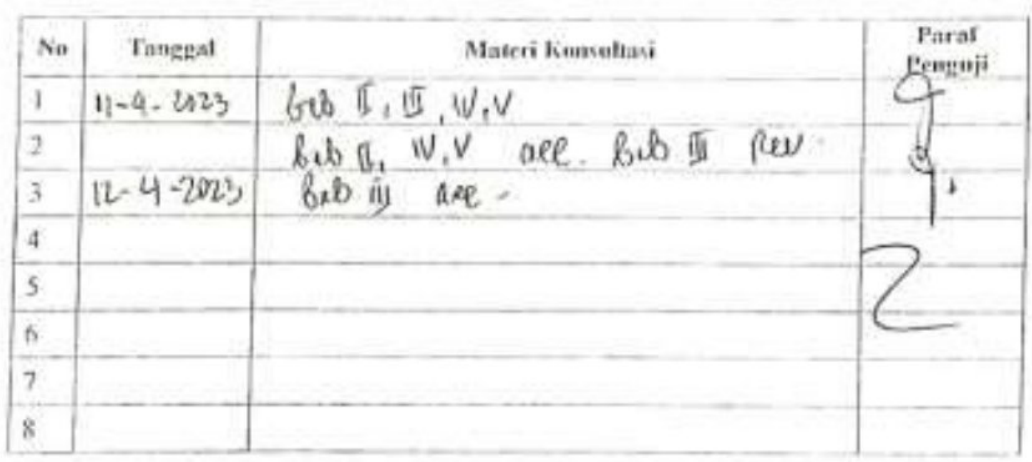 No Tanggal Materi Konsultasi Paraf Penguji
1 11-4-2023 bab II, III, IV, V
2 Bab II, IV, V acc. Bab III Rev.
3 12-4-2023 Bab iii acc -
4
5
6
7
8